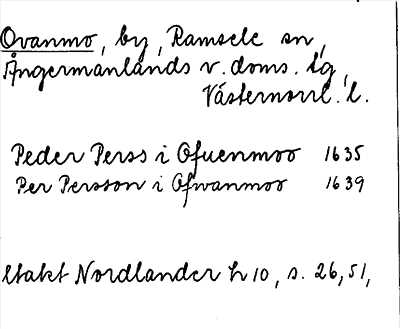 Ovanmo, by, Ramsele sn,
Ångermanlands v. doms. tg,
Västernorrl. l.
Peder Perss i Ofuenmoo 1635
Per Persson i Ofwanmoo 1639
Utakt Nordlander h 10, s. 26, 51,